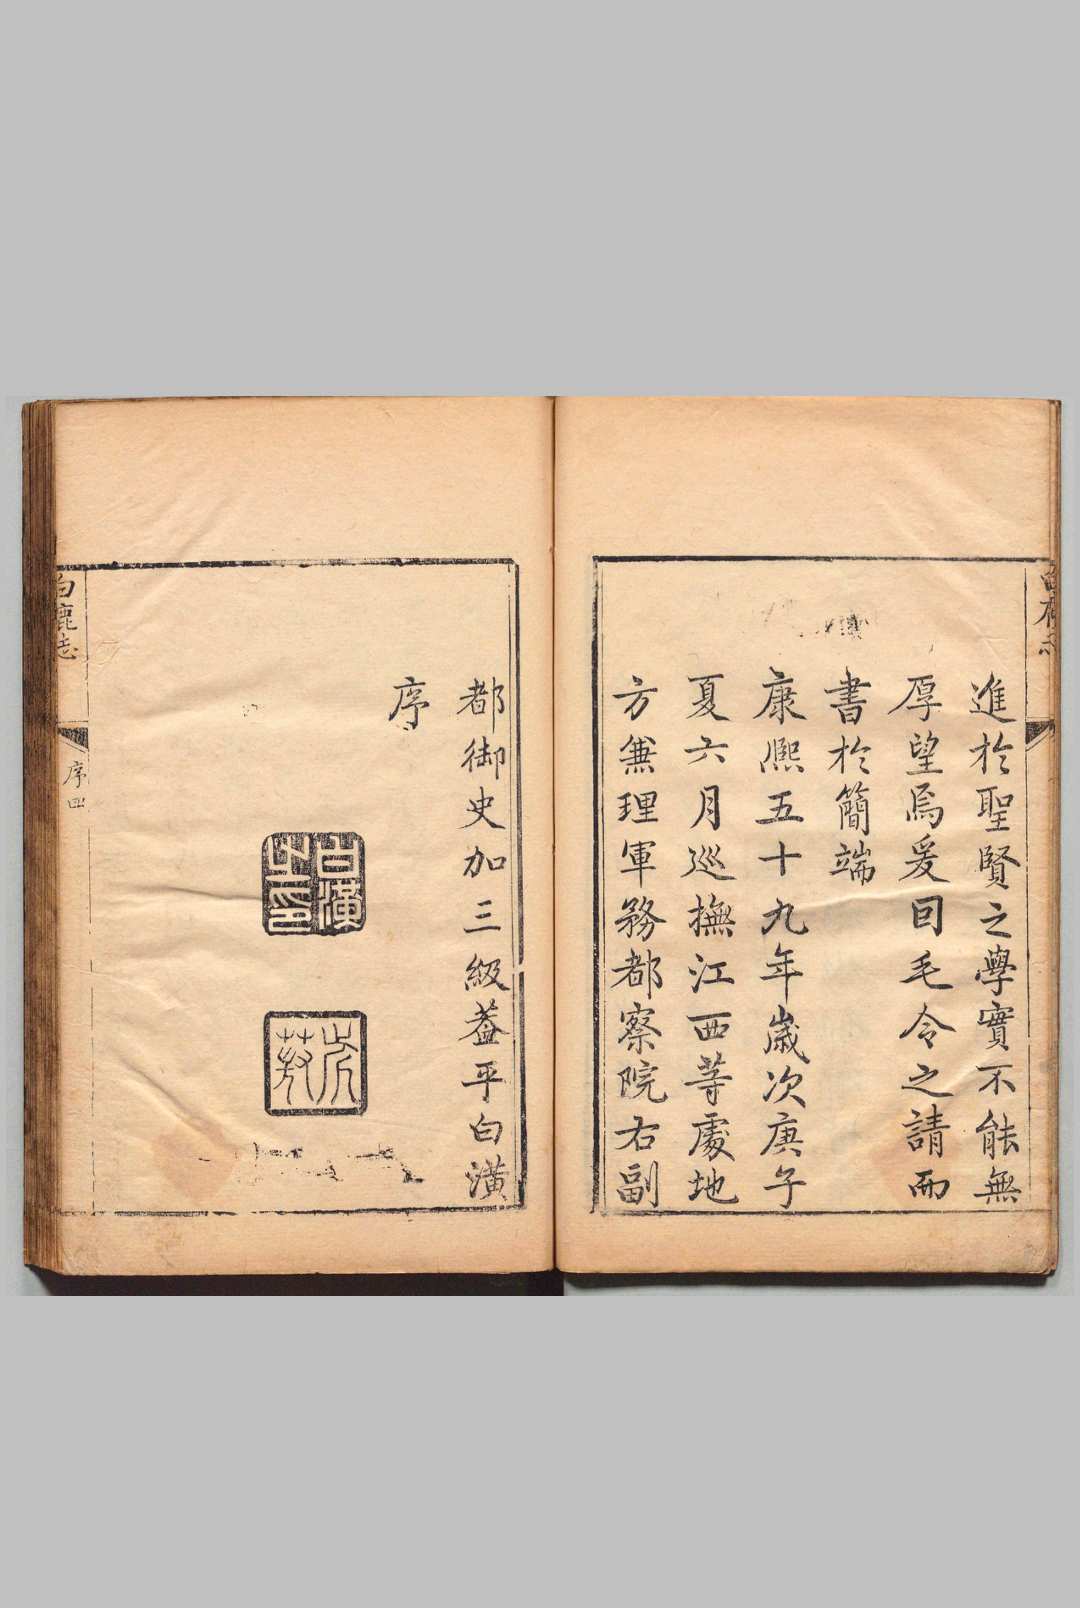 進於聖賢之學實不能無
厚望焉爰回毛令之請而
書於簡端
康熙五十九年歲次庚子
夏六月巡撫江西等處地
方兼理軍務都察院右副
都御史加三級葢平白潢
序
白潢之印
白鹿志
序四